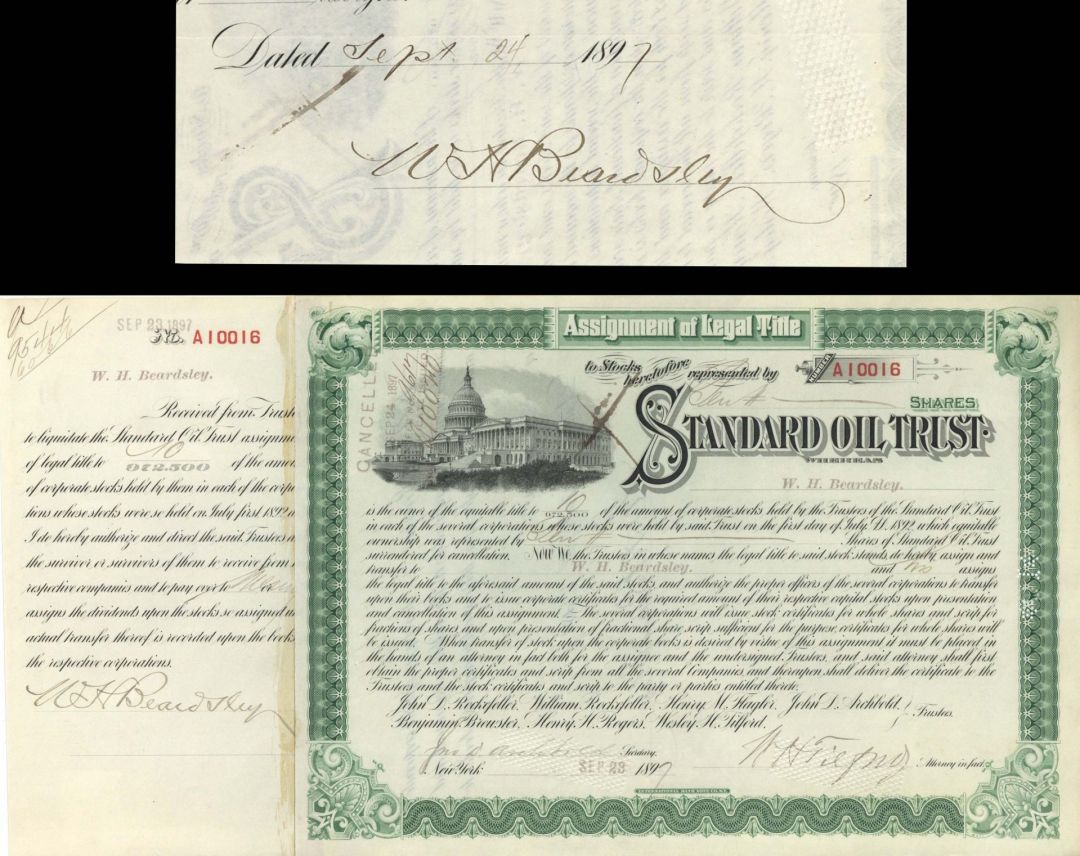 Dated Sept. 24 1897
W H Beardsley
SEP 23 1897
No. A10016
W. H. Beardsley.
Received from Truste
to liquidate the Standard Oil Trust assignme
of legal title to 10/972.500 of the amou
of corporate stocks held by them in each of the corpo
tions whose stocks were so held on July first 1892 a
I do hereby authorize and direct the said Trustees a
the survivor or survivors of them to receive from
respective companies and to pay over to or
assigns the dividends upon the stocks so assigned un
actual transfer thereof is recorded upon the books
the respective corporations.
W H Beardsley
Assignment of Legal Title
to Stocks heretofore represented by
NUMBER A10016
Ten
SHARES
STANDARD OIL TRUST
WHEREAS
CANCELLED
SEP 24 1897
W. H. Beardsley.
is the owner of the equitable title to 10/972.500 of the amount of corporate stocks held by the Trustees of the Standard Oil Trust
in each of the several corporations whose stocks were held by said Trust on the first day of July A. D. 1892 which equitable
ownership was represented by Ten Shares of Standard Oil Trust
surrendered for cancellation. Now We the Trustees in whose names the legal title to said stock stands, do hereby assign and
transfer to W. H. Beardsley. and his assigns
the legal title to the aforesaid amount of the said stocks and authorize the proper officers of the several corporations to transfer
upon their books and to issue corporate certificates for the required amount of their respective capital stocks upon presentation
and cancellation of this assignment. The several corporations will issue stock certificates for whole shares and scrip for
fractions of shares and upon presentation of fractional share scrip sufficient for the purpose, certificates for whole shares will
be issued. When transfer of stock upon the corporate books is desired by virtue of this assignment it must be placed in
the hands of an attorney in fact both for the assignee and the undersigned Trustees, and said attorney shall first
obtain the proper certificates and scrip from all the several Companies and thereupon shall deliver the certificate to the
Trustees and the stock certificates and scrip to the party or parties entitled thereto.
John D. Rockefeller, William Rockefeller, Henry M. Flagler, John D. Archbold,
Benjamin Brewster, Henry H. Rogers, Wesley H. Tilford. Trustees.
Jno D Archbold Secretary.
New York SEP 23 1897
Attorney in fact.
INTERNATIONAL BANK NOTE CO. N.Y.